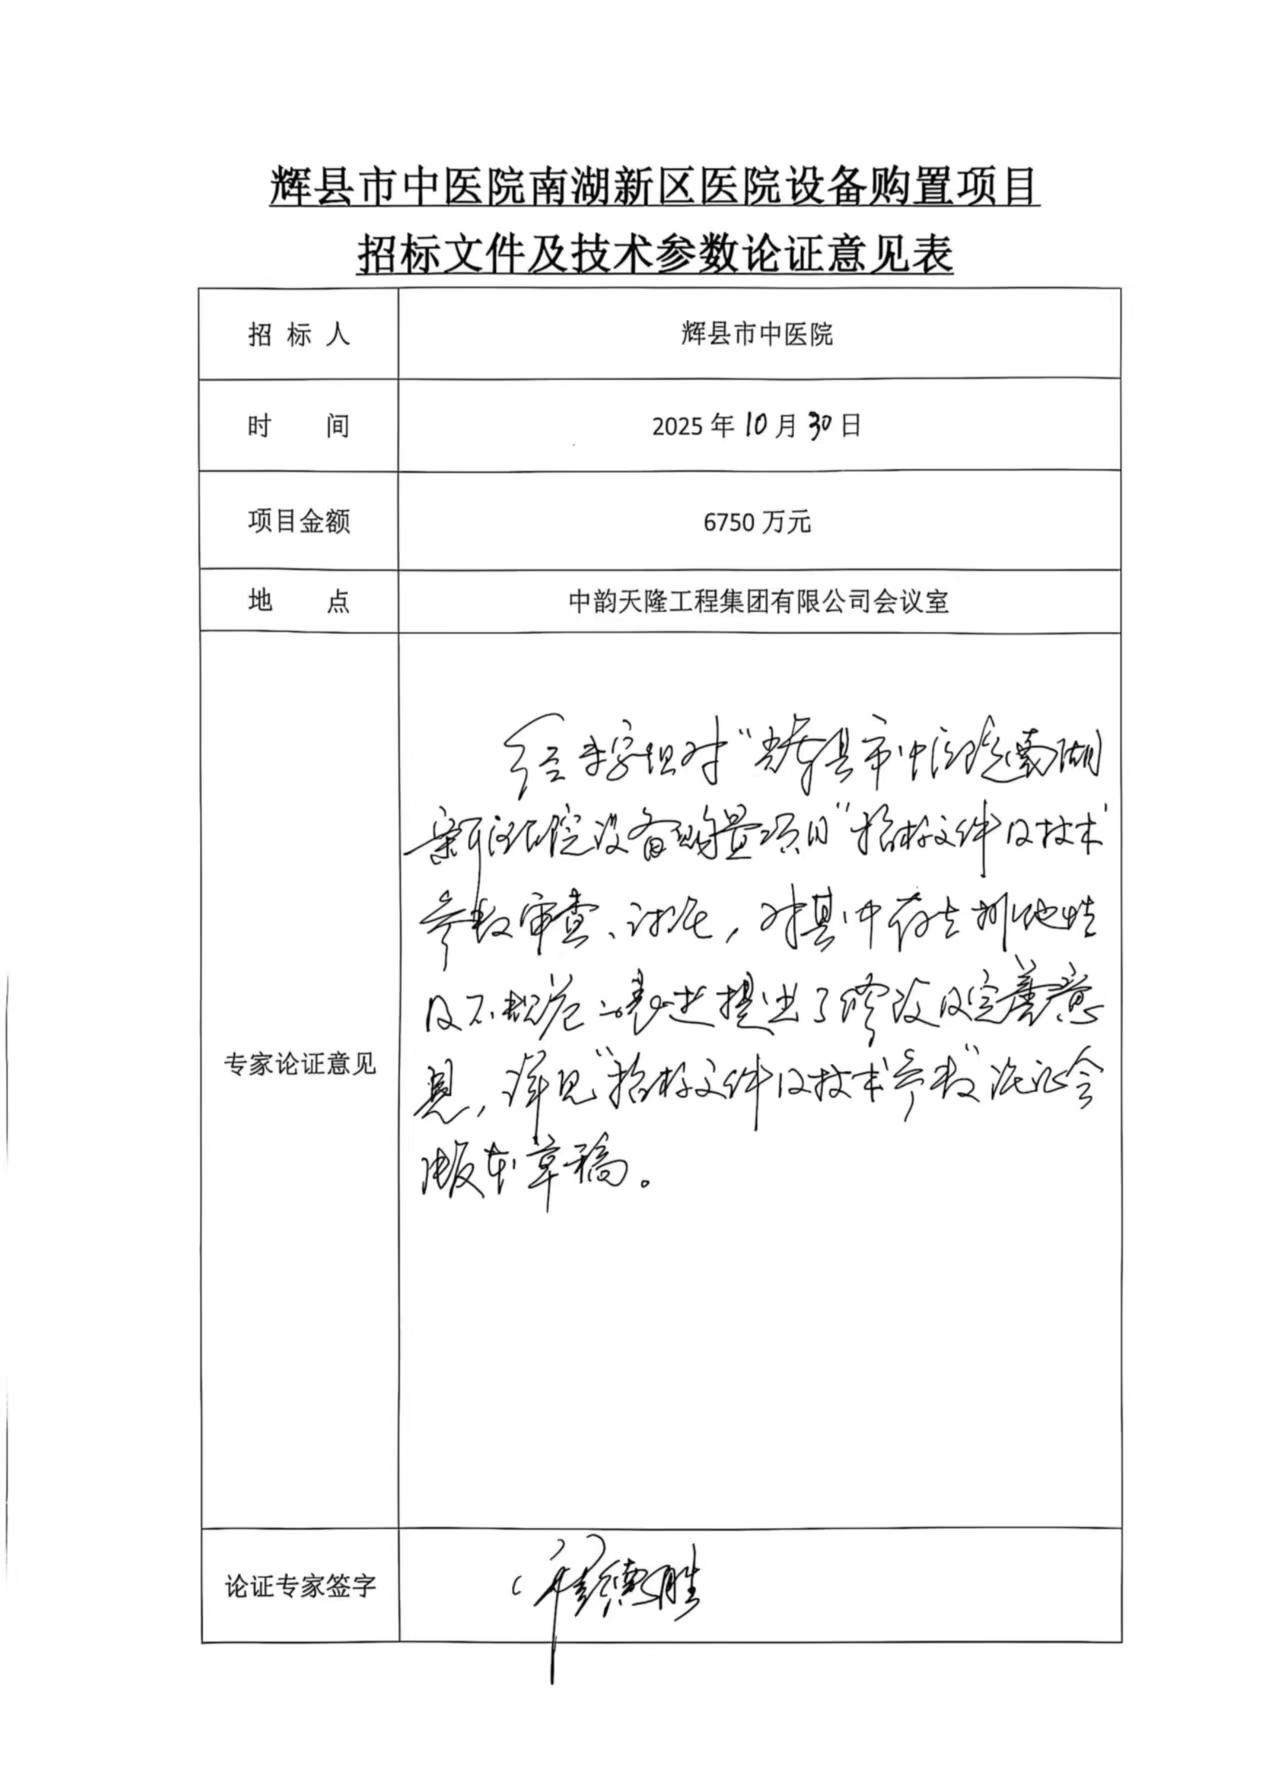 辉县市中医院南湖新区医院设备购置项目
招标文件及技术参数论证意见表
招 标 人 辉县市中医院
时 间 2025 年 10 月 30 日
项目金额 6750 万元
地 点 中韵天隆工程集团有限公司会议室
专家论证意见
经专家组对“辉县市中医院南湖
新区医院设备购置项目”招标文件及技术
参数审查、讨论，对其中存在排他性
及不规范 提出了修改及完善意
见，详见“招标文件及技术参数”论证会
版本草稿。
论证专家签字 德胜